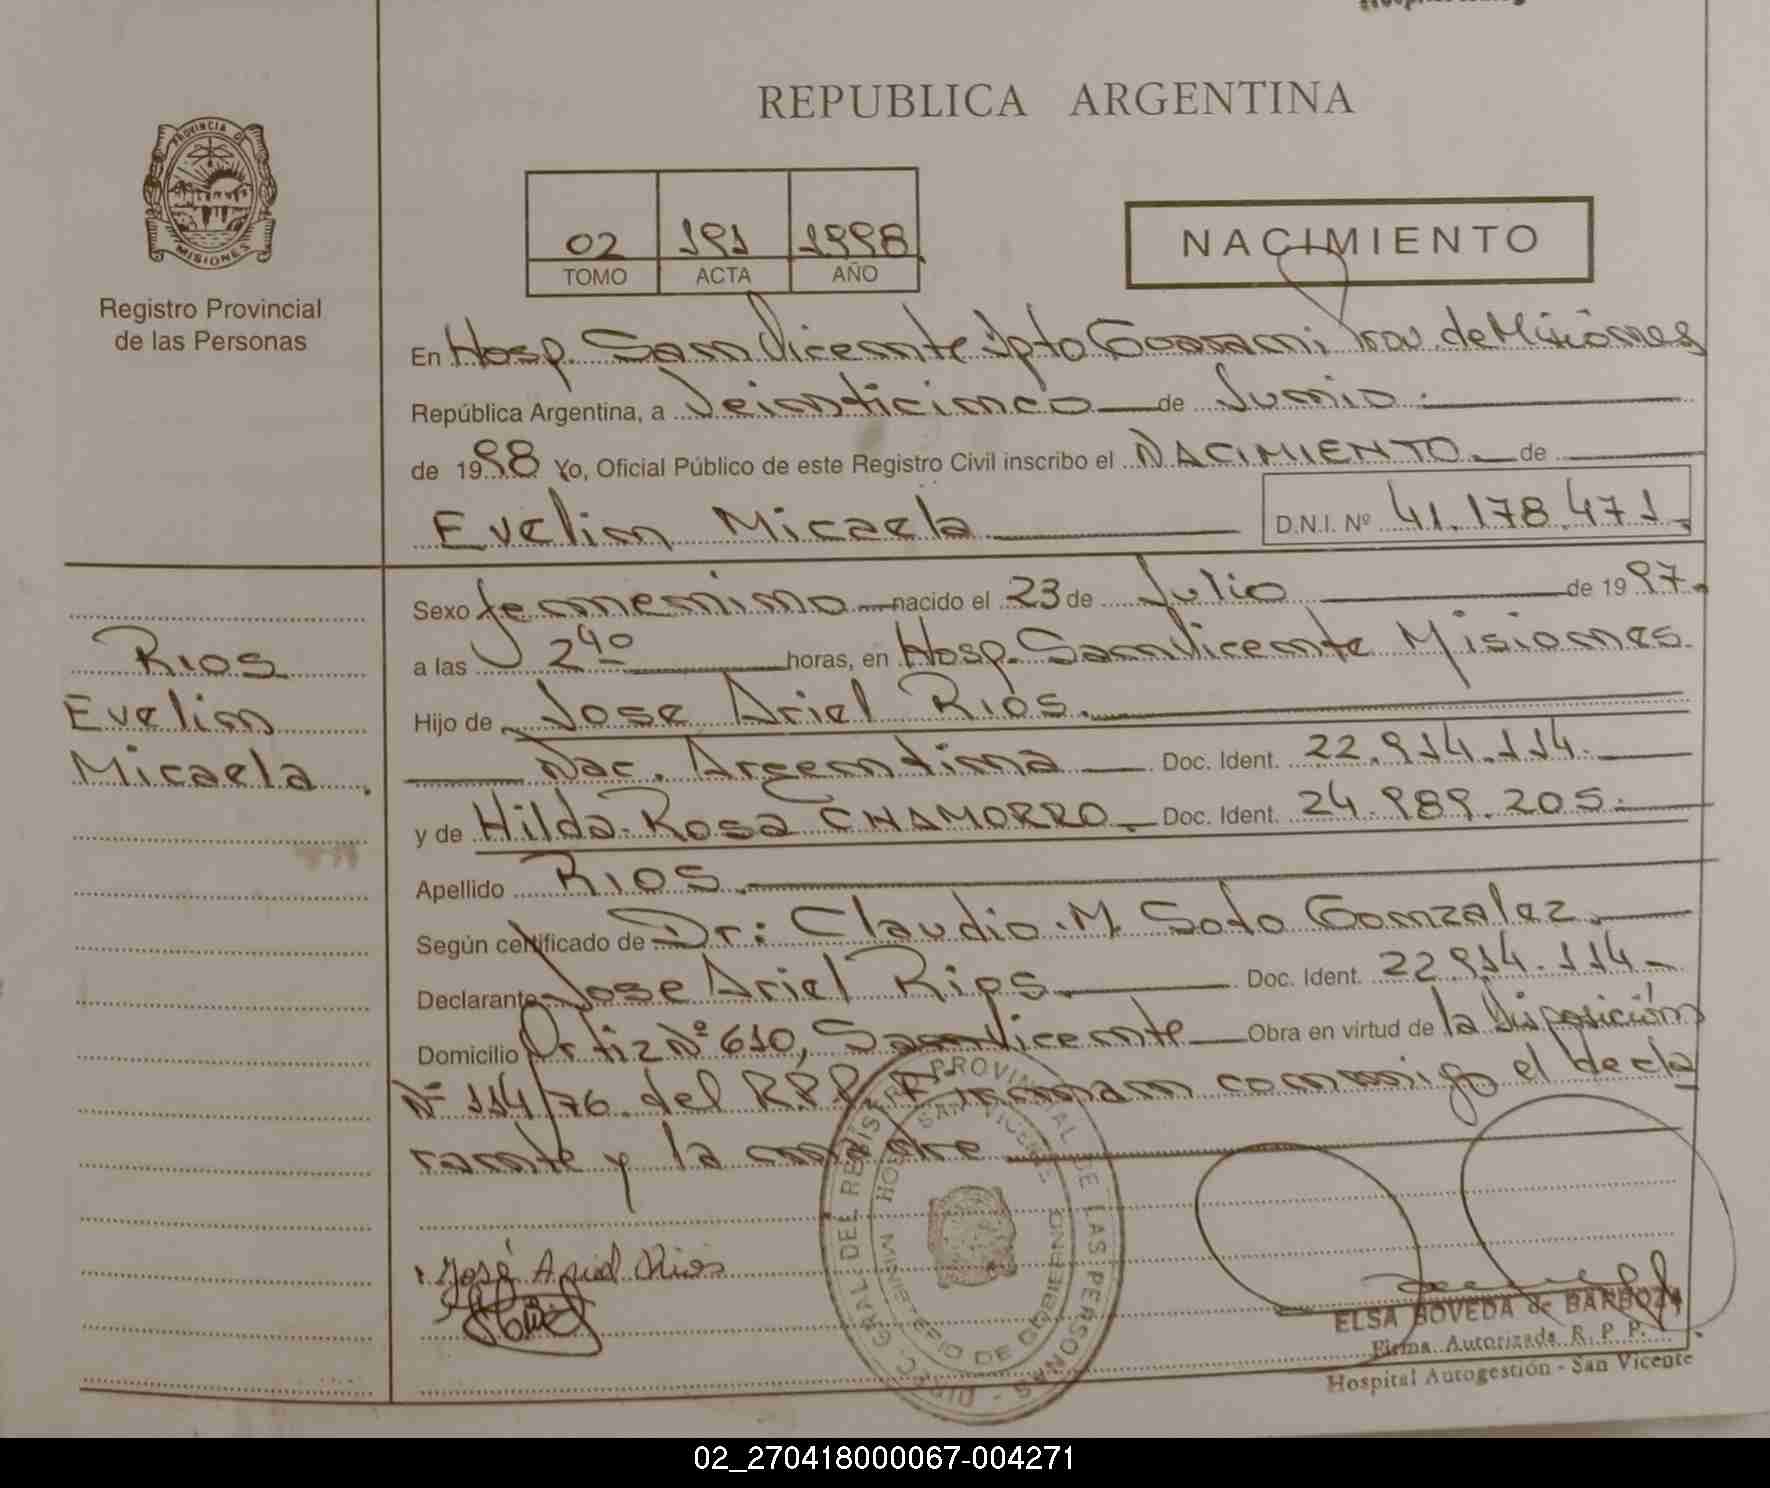 REPUBLICA ARGENTINA
PROVINCIA DE
MISIONES
Registro Provincial
de las Personas
02 191 1998.
TOMO ACTA AÑO
NACIMIENTO
En Hosp. San Vicente Dpto Guarani Prov. de Misiones
República Argentina, a Veinticinco de Junio.
de 1998 Yo, Oficial Público de este Registro Civil inscribo el NACIMIENTO de
Evelin Micaela D.N.I. Nº 41.178.471.
Sexo femenino nacido el 23 de Julio de 1997.
a las 2⁴⁰ horas, en Hosp. San Vicente Misiones.
Hijo de Jose Ariel Rios.
Nac. Argentina Doc. Ident. 22.914.114.
y de Hilda Rosa CHAMORRO. Doc. Ident. 24.989.205.
Apellido RIOS.
Según certificado de Dr: Claudio M Soto Gonzalez.
Declarante Jose Ariel Rios. Doc. Ident. 22914.114
Domicilio Ortiz Nº 610, San Vicente Obra en virtud de la Disposición
Nº 114/76 del R.P.P. Firman conmigo el decla
rante y la madre
Rios
Evelin
Micaela.
José Ariel Rios
DIRC. GRAL. DEL REGISTRO PROVINCIAL DE LAS PERSONAS
HOSP. SAN VICENTE
MINISTERIO DE GOBIERNO
ELSA BOVEDA de BARBOZA
Firma Autorizada R. P. P.
Hospital Autogestión - San Vicente
02_270418000067-004271